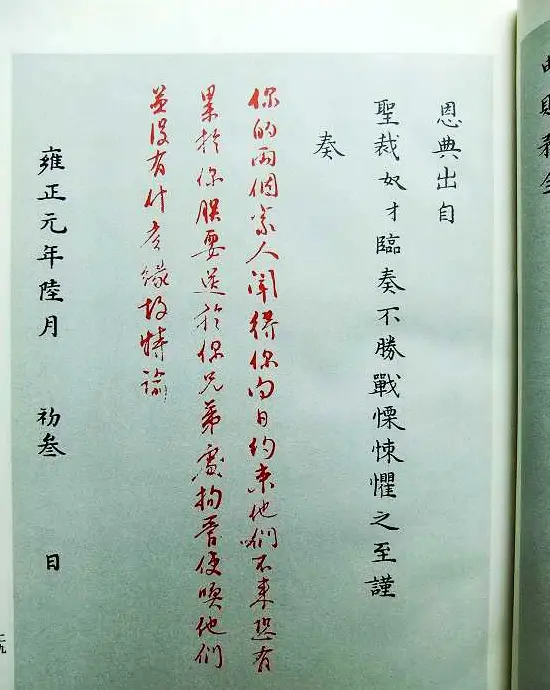 恩典出自
聖裁奴才臨奏不勝戰慄悚懼之至謹
奏
你的兩個家人聞得你向日約束他們不來恐有
累於你朕要送於你兄弟處拘管使喚他們
並没有什么緣故特諭
雍正元年陸月 初叁 日
二九